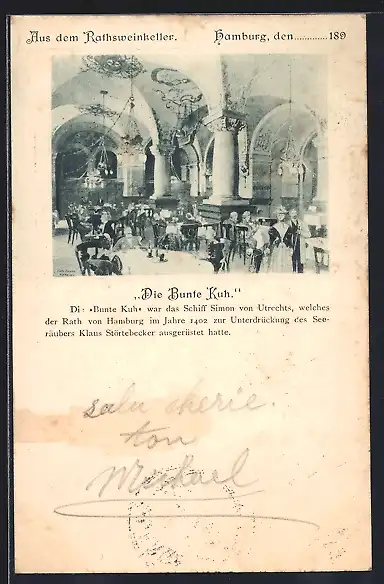 Aus dem Rathsweinkeller. Hamburg, den.............189
„Die Bunte Kuh."
Di: »Bunte Kuh« war das Schiff Simon von Utrechts, welches
der Rath von Hamburg im Jahre 1402 zur Unterdrückung des See-
räubers Klaus Störtebecker ausgerüstet hatte.
salu cherie.
ton
Michael